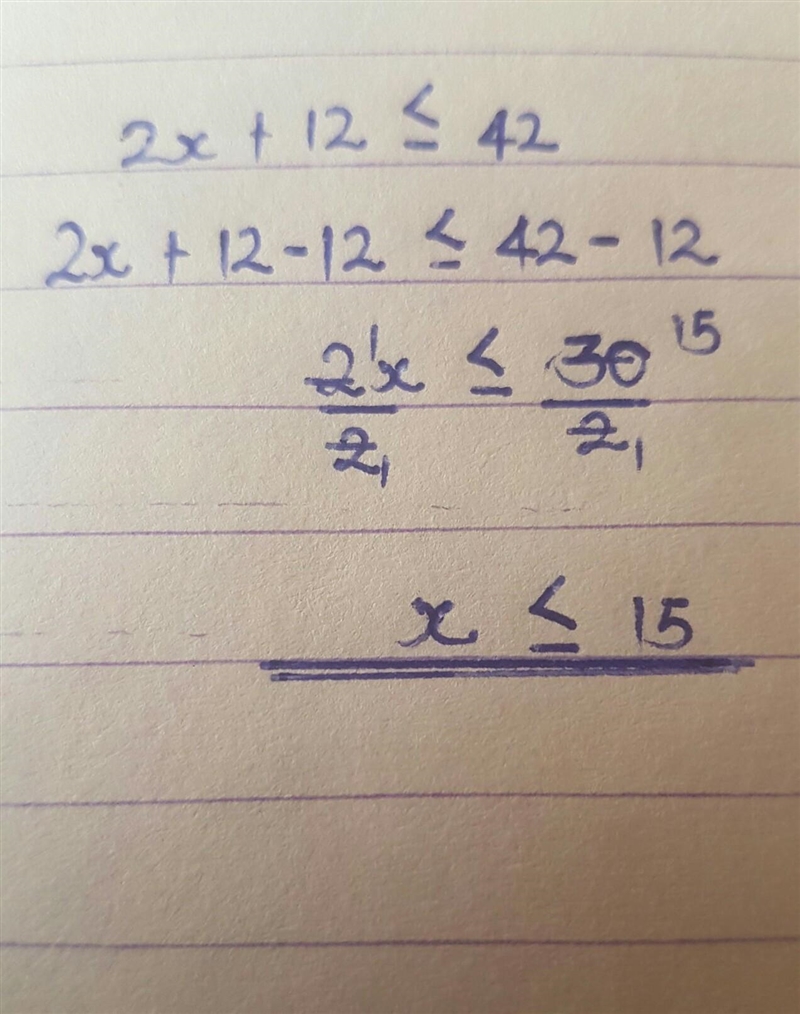 2x + 12 ≤ 42
2x + 12 - 12 ≤ 42 - 12
2¹x ≤ 30 15
2₁ 2₁
x ≤ 15